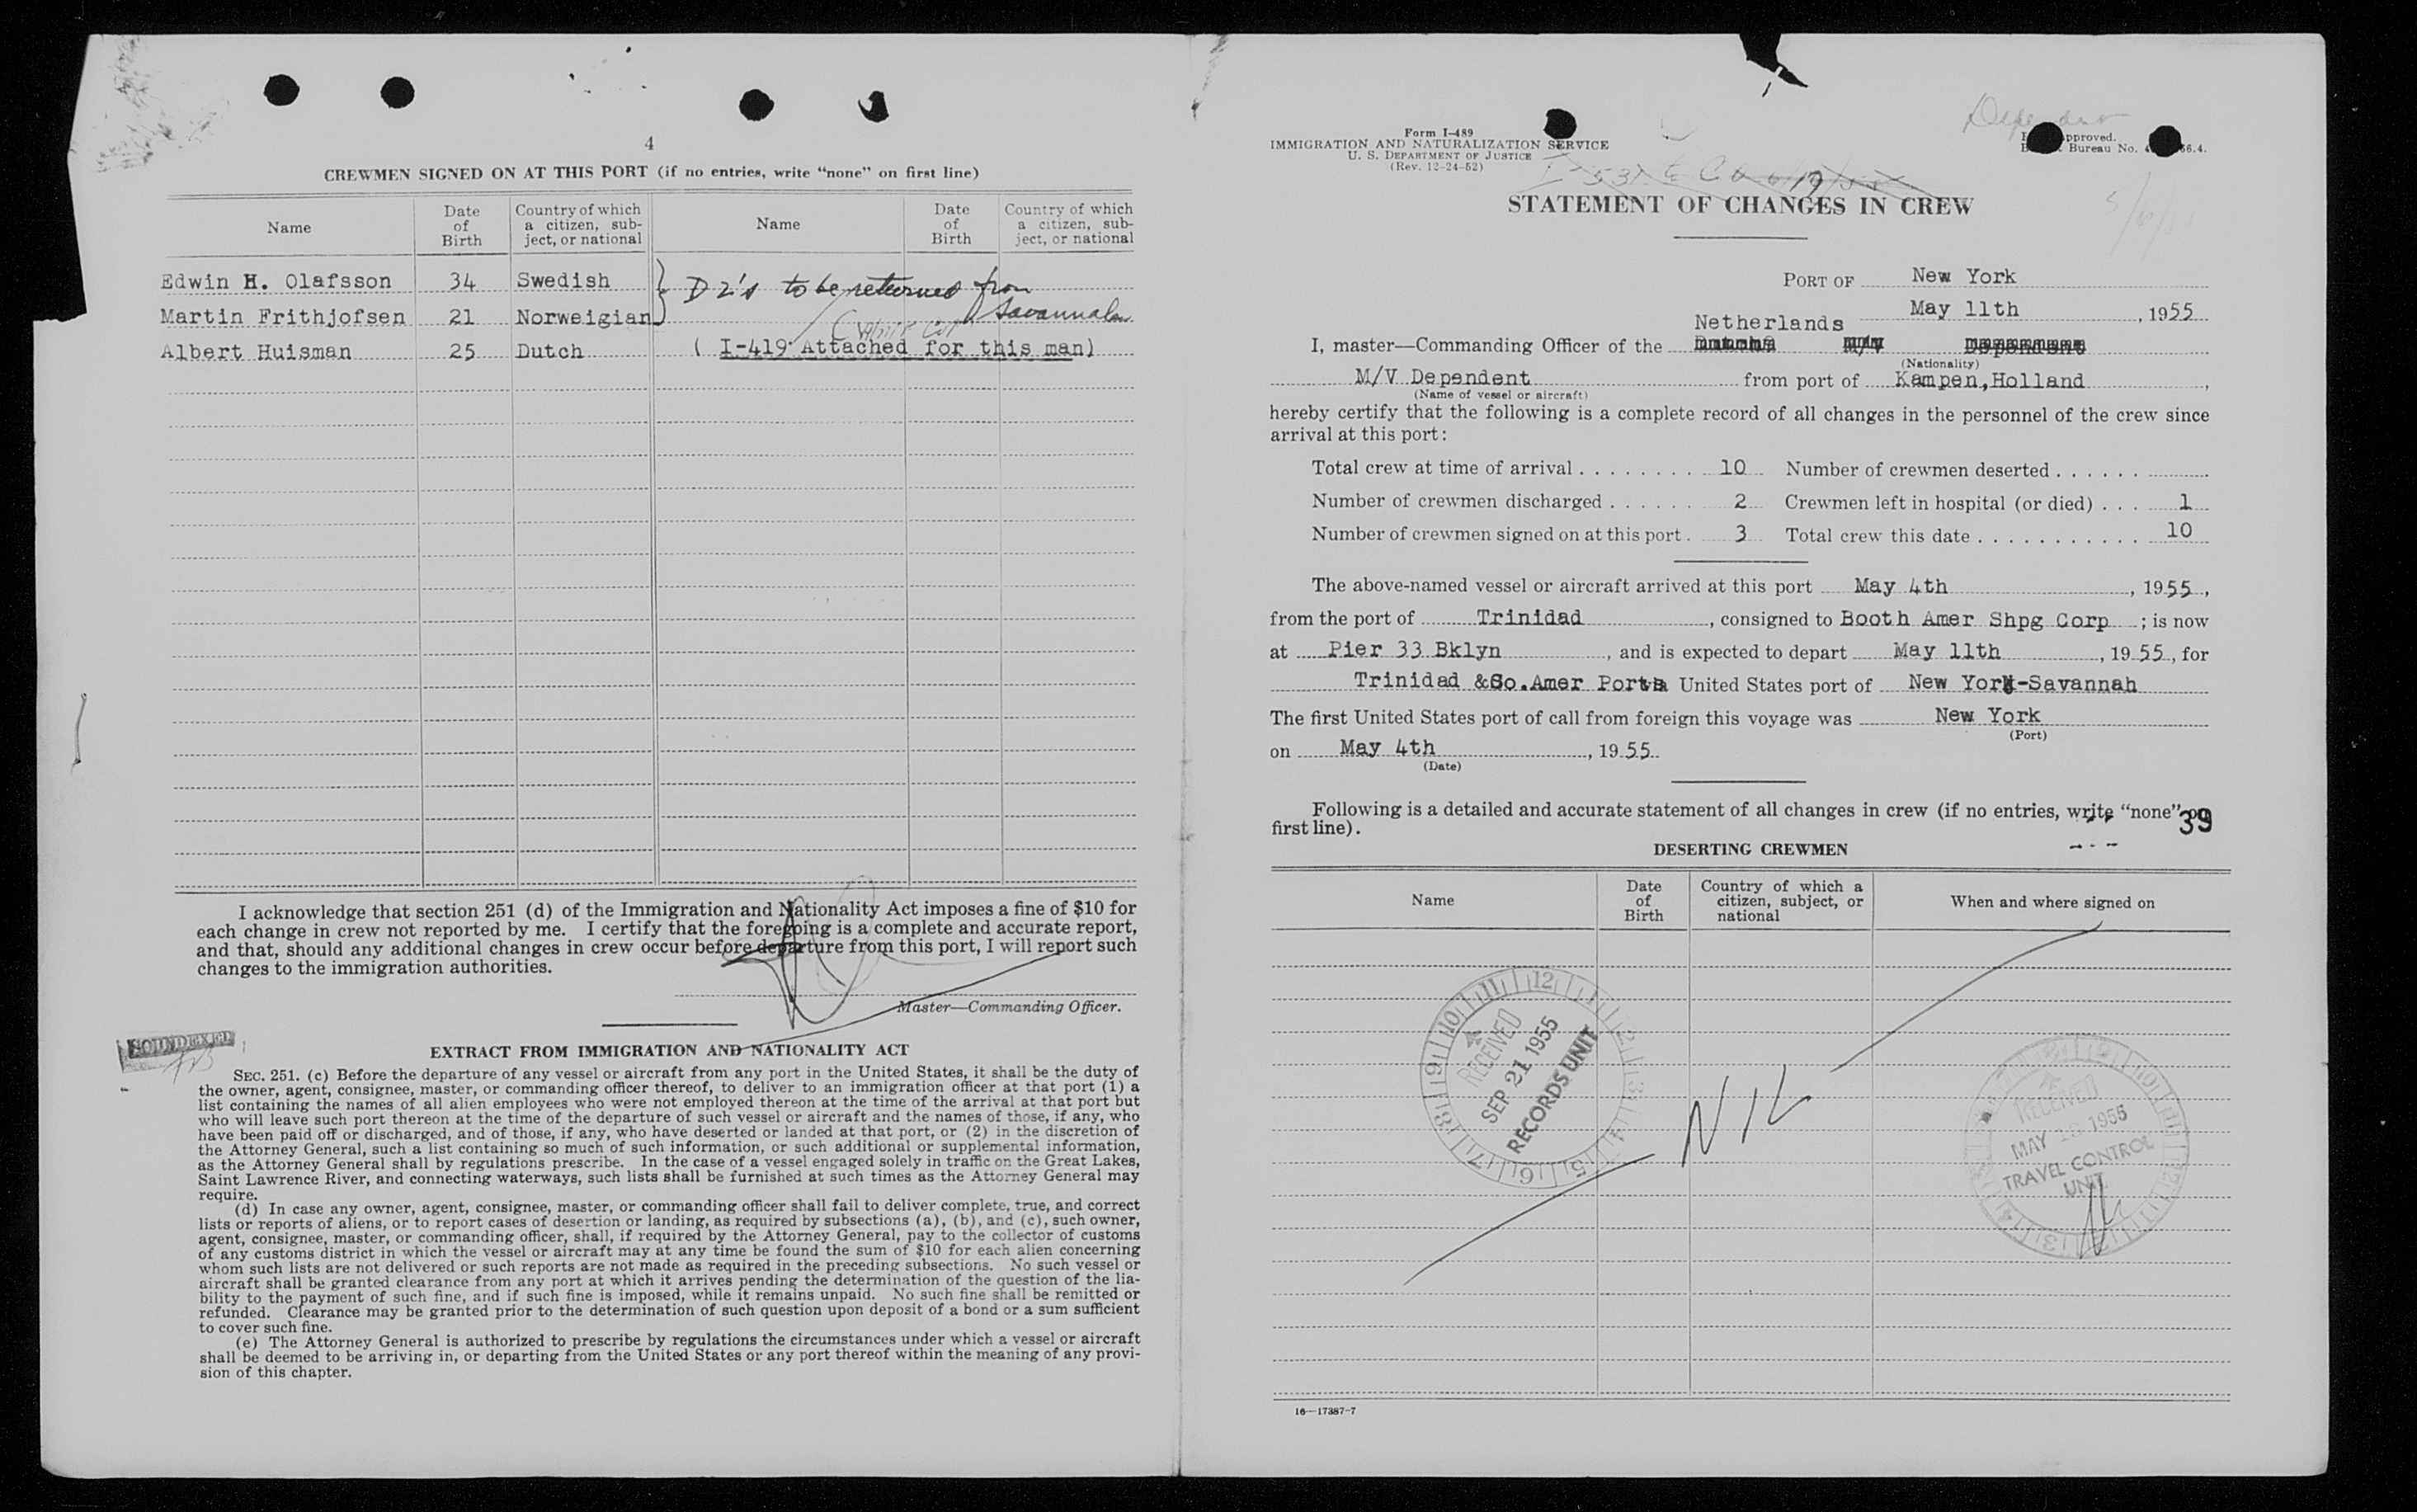 4
CREWMEN SIGNED ON AT THIS PORT (if no entries, write “none” on first line)
Name Date of Birth Country of which a citizen, subject, or national Name Date of Birth Country of which a citizen, subject, or national
Edwin H. Olafsson 34 Swedish } D2's to be returned from
Martin Frithjofsen 21 Norweigian Savannah
Albert Huisman 25 Dutch ( I-419 Attached for this man)
I acknowledge that section 251 (d) of the Immigration and Nationality Act imposes a fine of $10 for
each change in crew not reported by me. I certify that the foregoing is a complete and accurate report,
and that, should any additional changes in crew occur before departure from this port, I will report such
changes to the immigration authorities.
Master—Commanding Officer.
SOUNDEXED
EXTRACT FROM IMMIGRATION AND NATIONALITY ACT
SEC. 251. (c) Before the departure of any vessel or aircraft from any port in the United States, it shall be the duty of
the owner, agent, consignee, master, or commanding officer thereof, to deliver to an immigration officer at that port (1) a
list containing the names of all alien employees who were not employed thereon at the time of the arrival at that port but
who will leave such port thereon at the time of the departure of such vessel or aircraft and the names of those, if any, who
have been paid off or discharged, and of those, if any, who have deserted or landed at that port, or (2) in the discretion of
the Attorney General, such a list containing so much of such information, or such additional or supplemental information,
as the Attorney General shall by regulations prescribe. In the case of a vessel engaged solely in traffic on the Great Lakes,
Saint Lawrence River, and connecting waterways, such lists shall be furnished at such times as the Attorney General may
require.
(d) In case any owner, agent, consignee, master, or commanding officer shall fail to deliver complete, true, and correct
lists or reports of aliens, or to report cases of desertion or landing, as required by subsections (a), (b), and (c), such owner,
agent, consignee, master, or commanding officer, shall, if required by the Attorney General, pay to the collector of customs
of any customs district in which the vessel or aircraft may at any time be found the sum of $10 for each alien concerning
whom such lists are not delivered or such reports are not made as required in the preceding subsections. No such vessel or
aircraft shall be granted clearance from any port at which it arrives pending the determination of the question of the lia-
bility to the payment of such fine, and if such fine is imposed, while it remains unpaid. No such fine shall be remitted or
refunded. Clearance may be granted prior to the determination of such question upon deposit of a bond or a sum sufficient
to cover such fine.
(e) The Attorney General is authorized to prescribe by regulations the circumstances under which a vessel or aircraft
shall be deemed to be arriving in, or departing from the United States or any port thereof within the meaning of any provi-
sion of this chapter.
Form I-489
IMMIGRATION AND NATURALIZATION SERVICE
U. S. DEPARTMENT OF JUSTICE
(Rev. 12-24-52)
pproved.
Bureau No.
STATEMENT OF CHANGES IN CREW
PORT OF New York
May 11th, 1955
Netherlands
I, master—Commanding Officer of the
(Nationality)
M/V Dependent from port of Kampen,Holland,
(Name of vessel or aircraft)
hereby certify that the following is a complete record of all changes in the personnel of the crew since
arrival at this port:
Total crew at time of arrival . . . . . . . . 10 Number of crewmen deserted . . . . . .
Number of crewmen discharged . . . . . . 2 Crewmen left in hospital (or died) . . . 1
Number of crewmen signed on at this port . 3 Total crew this date . . . . . . . . . . . 10
The above-named vessel or aircraft arrived at this port May 4th, 1955,
from the port of Trinidad, consigned to Booth Amer Shpg Corp ; is now
at Pier 33 Bklyn, and is expected to depart May 11th, 1955, for
Trinidad &So.Amer Ports United States port of New York-Savannah
The first United States port of call from foreign this voyage was New York
(Port)
on May 4th, 1955
(Date)
Following is a detailed and accurate statement of all changes in crew (if no entries, write “none” on
first line).
39
DESERTING CREWMEN
Name Date of Birth Country of which a citizen, subject, or national When and where signed on
RECEIVED
SEP 21 1955
RECORDS UNIT
NIL
RECEIVED
MAY 1955
TRAVEL CONTROL
UNIT
16—17387-7